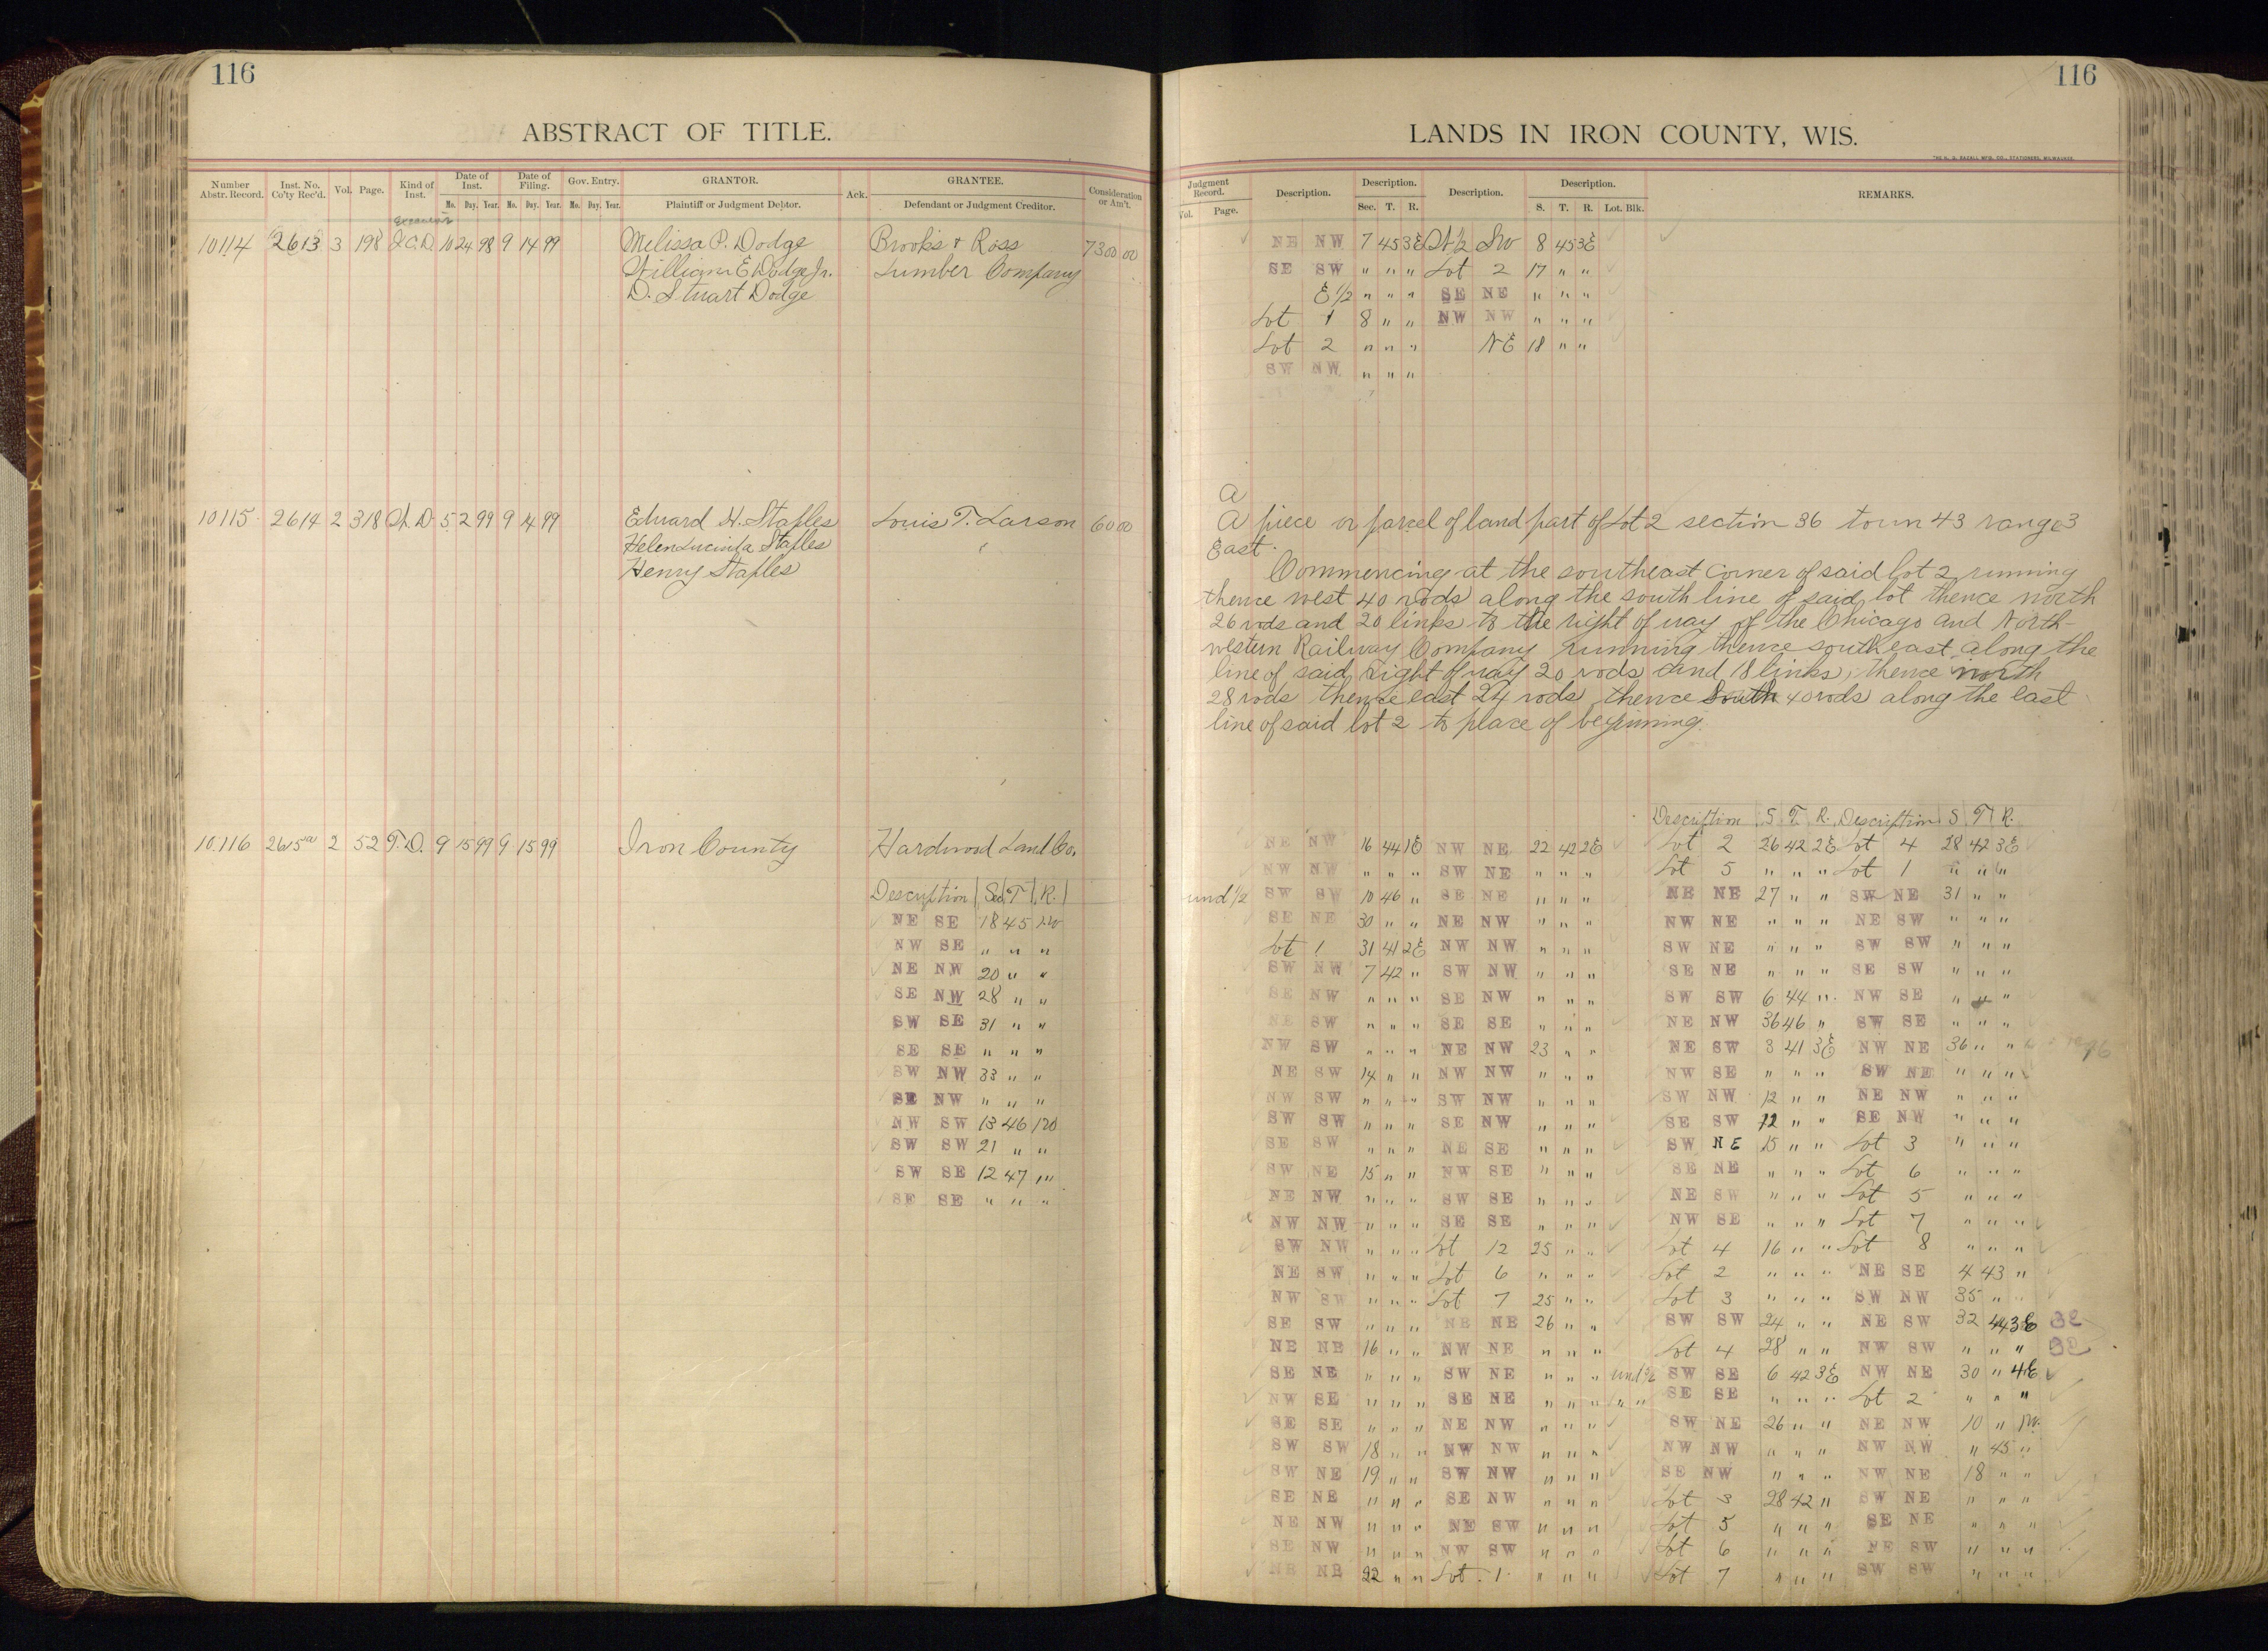 116
ABSTRACT OF TITLE.
Number Abstr. Record. Inst. No. Co'ty Rec'd. Vol. Page. Kind of Inst. Date of Inst. Date of Filing. Gov. Entry. GRANTOR. Ack. GRANTEE. Consideration or Am't.
Mo. Day. Year. Mo. Day. Year. Mo. Day. Year. Plaintiff or Judgment Debtor. Defendant or Judgment Creditor.
10114 2613 3 198 D. 10 24 98 9 14 99 Melissa P. Dodge Brooks & Ross 7300 00
William E Dodge Jr. Lumber Company
D. Stuart Dodge
10115 2614 2 318 D. 5 2 99 9 14 99 Edward H. Staples Louis T. Larson 60 00
Helen Lucinda Staples "
Henry Staples
10116 2615 2 52 T.D. 9 15 99 9 15 99 Iron County Hardwood Land Co.
Description Sec T. R.
NE SE 18 45 1W
NW SE " " "
NE NW 20 " "
SE NW 28 " "
SW SE 31 " "
SE SE " " "
SW NW 33 " "
SE NW " " "
NW SW 13 46 1W
SW SW 21 " "
SW SE 12 47 1"
SE SE " " "
116
LANDS IN IRON COUNTY, WIS.
Judgment Record. Description. Description. Description. Description. REMARKS.
Vol. Page. Sec. T. R. S. T. R. Lot. Blk.
NE NW 7 45 3E N1/2 SW 8 45 3E
SE SW " " " Lot 2 17 " "
E 1/2 " " " SE NE " " "
Lot 1 8 " " NW NW " " "
Lot 2 " " " NE 18 " "
SW NW " " "
A
A piece or parcel of land part of Lot 2 section 36 town 43 range 3
East.
Commencing at the southeast corner of said lot 2 running
thence west 40 rods along the south line of said lot thence north
26 rods and 20 links to the right of way of the Chicago and North-
western Railway Company running thence southeast along the
line of said right of way 20 rods and 18 links, thence north
28 rods thence east 24 rods thence South 40 rods along the east
line of said lot 2 to place of beginning.
Description S. T. R. Description S T R.
NE NW 16 44 1E NW NE 22 42 2E Lot 2 26 42 2E Lot 4 28 42 3E
NW NW " " " SW NE " " " Lot 5 " " " Lot 1 " " "
und 1/2 SW SW 10 46 " SE NE " " " NE NE 27 " " SW NE 31 " "
SE NE 30 " " NE NW " " " NW NE " " " NE SW " " "
Lot 1 31 41 2E NW NW " " " SW NE " " " SW SW " " "
SW NW 7 42 " SW NW " " " SE NE " " " SE SW " " "
SE NW " " " SE NW " " " SW SW 6 44 " NW SE " " "
NE SW " " " SE SE " " " NE NW 36 46 " SW SE " " "
NW SW " " " NE NW 23 " " NE SW 3 41 3E NW NE 36 " "
NE SW 14 " " NW NW " " " NW SE " " " SW NE " " "
NW SW " " " SW NW " " " SW NW 12 " " NE NW " " "
SW SW " " " SE NW " " " SE SW 12 " " SE NW " " "
SE SW " " " NE SE " " " SW NE 15 " " Lot 3 " " "
SW NE 15 " " NW SE " " " SE NE " " " Lot 6 " " "
NE NW " " " SW SE " " " NE SW " " " Lot 5 " " "
NW NW " " " SE SE " " " NW SE " " " Lot 7 " " "
SW NW " " " Lot 12 25 " " Lot 4 16 " " Lot 8 " " "
NE SW " " " Lot 6 " " " Lot 2 " " " NE SE 4 43 "
NW SW " " " Lot 7 25 " " Lot 3 " " " SW NW 35 " "
SE SW " " " NE NE 26 " " SW SW 24 " " NE SW 32 44 3E 3E
NE NE 16 " " NW NE " " " Lot 4 28 " " NW SW " " "
SE NE " " " SW NE " " " und 1/2 SW SE 6 42 3E NW NE 30 " 4E
NW SE " " " SE NE " " " " " SE SE " " " Lot 2 " " "
SE SE " " " NE NW " " " SW NE 26 " " NE NW 10 " 1W.
SW SW 18 " " NW NW " " " NW NW " " " NW NW " 45 "
SW NE 19 " " SW NW " " " SE NW " " " NW NE 18 " "
SE NE " " " SE NW " " " Lot 3 28 42 " SW NE " " "
NE NW " " " NE SW " " " Lot 5 " " " SE NE " " "
SE NW " " " NW SW " " " Lot 6 " " " NE SW " " "
NE NE 22 " " Lot 1 " " " Lot 7 " " " SW SW " " "